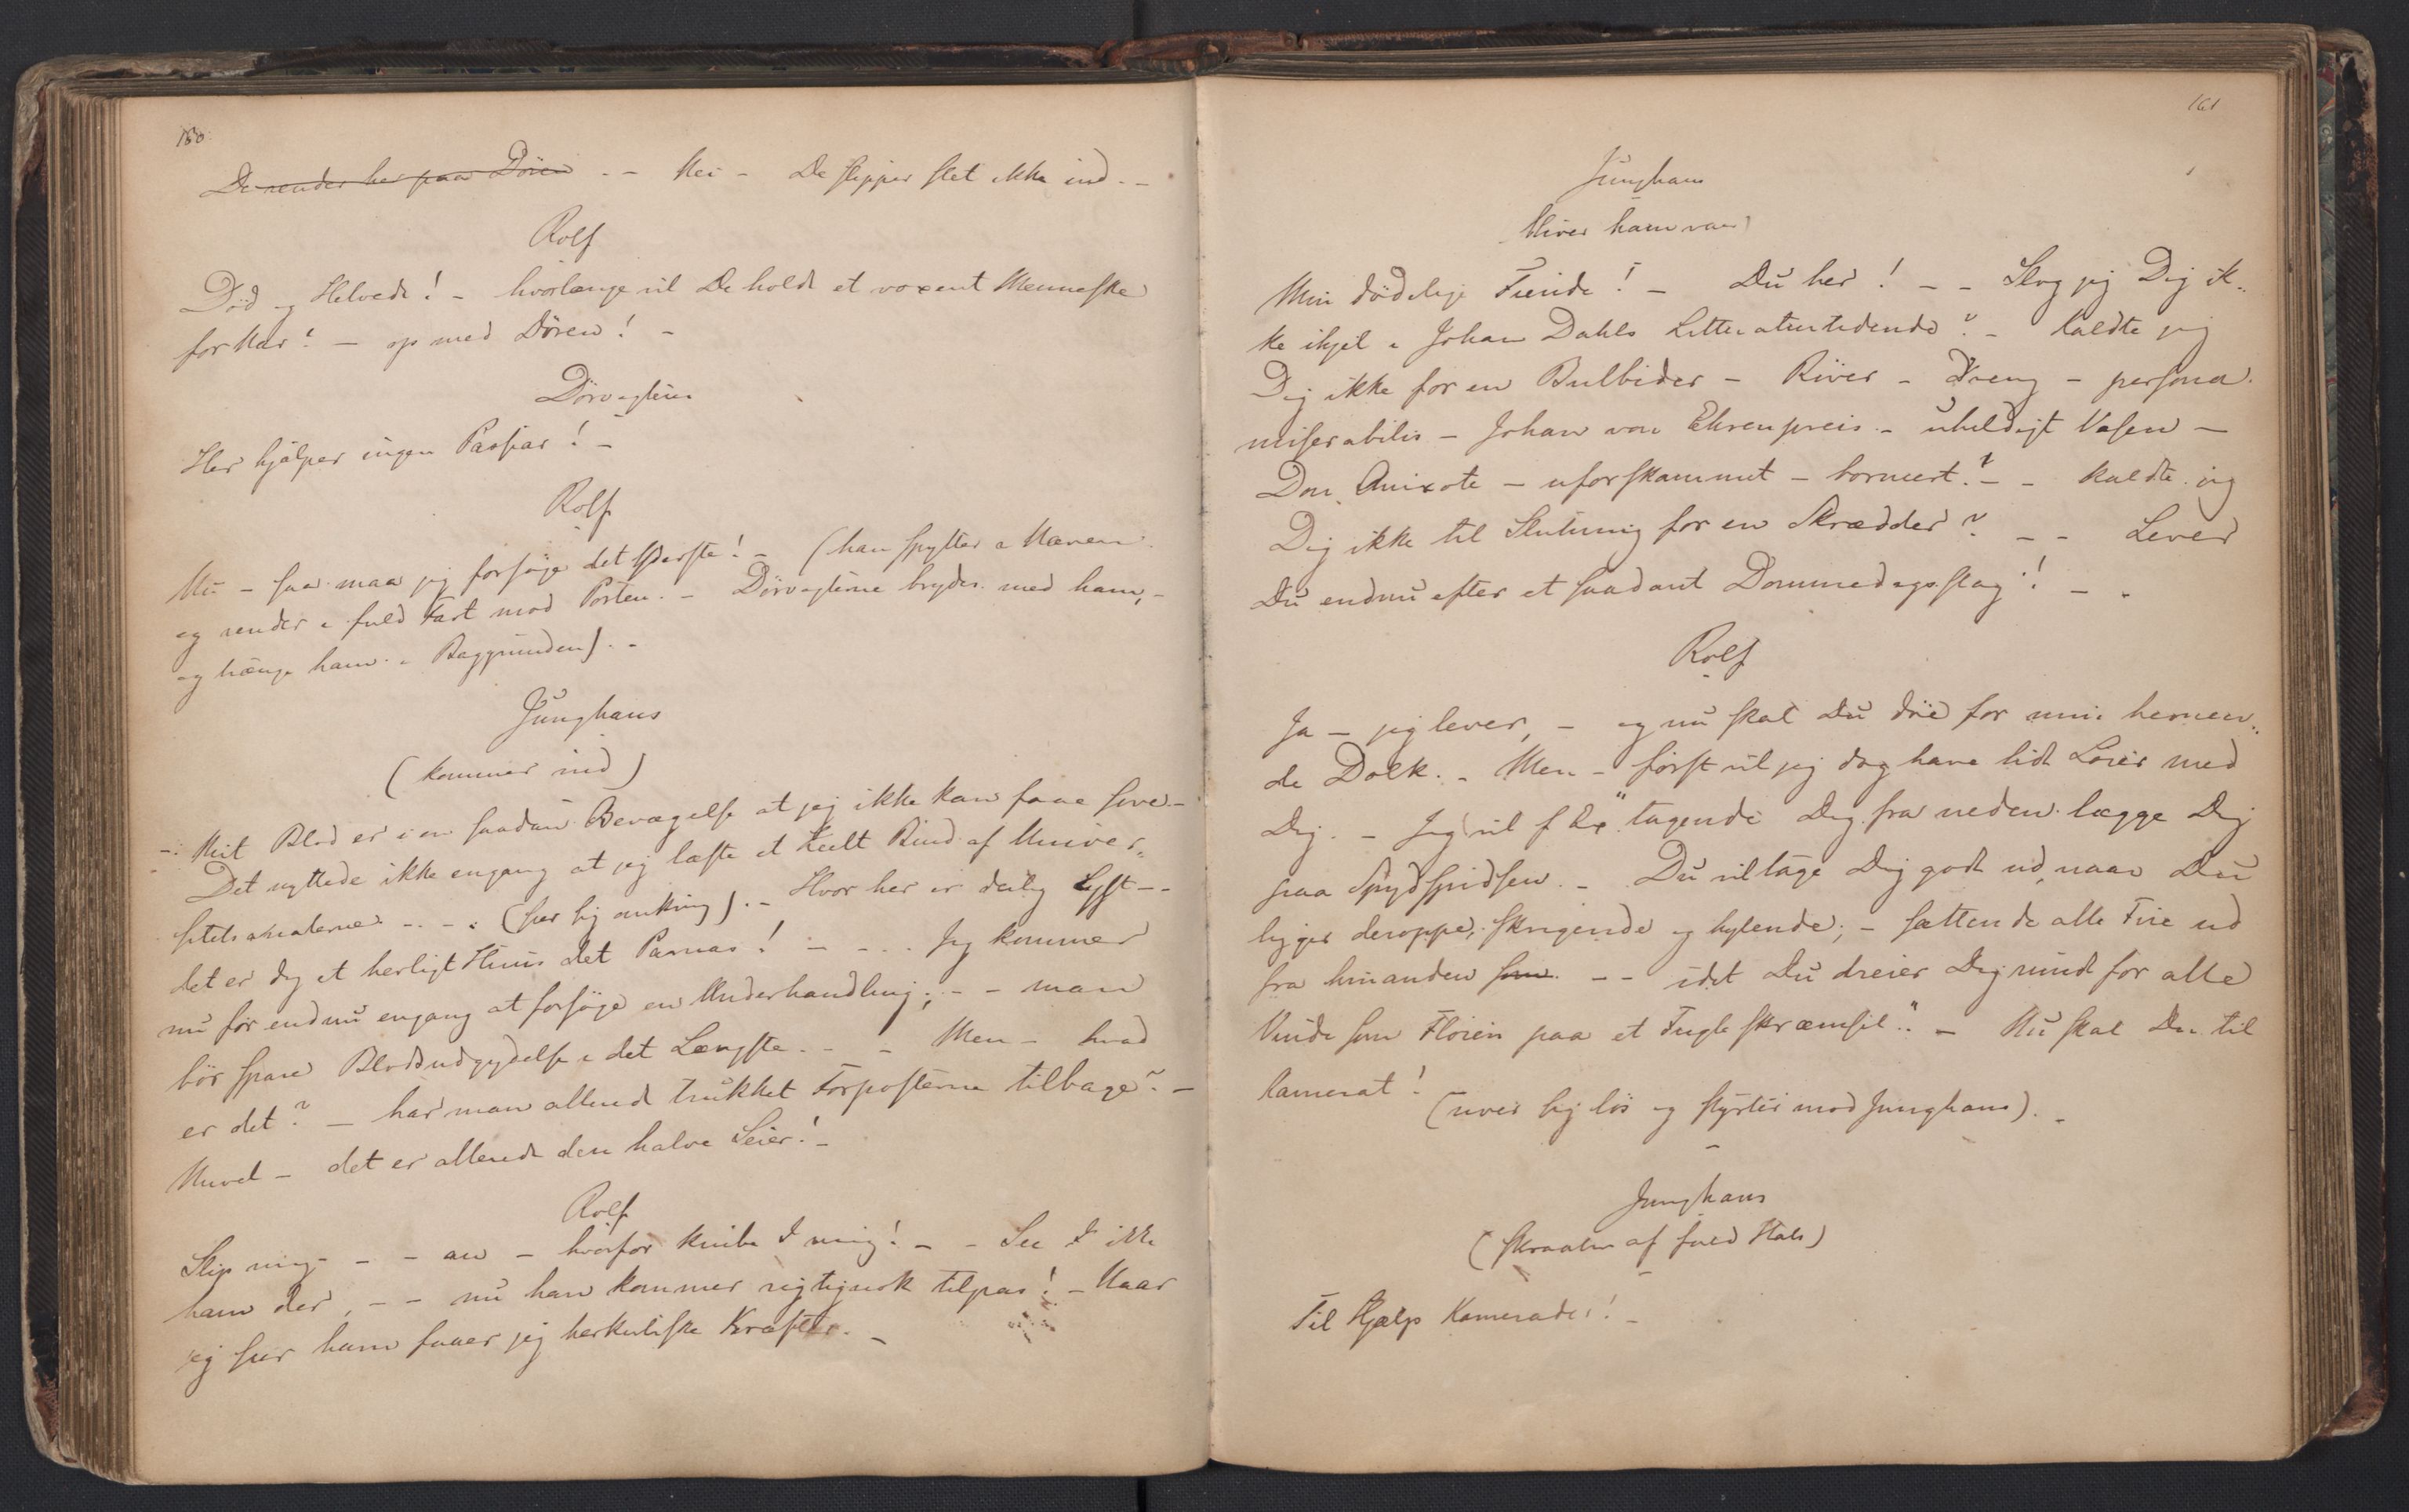 160
De render her paa Døren -- Nei - De slipper slet ikke ind. -
Rolf
Død og Helvede! - hvorlænge vil De holde et voxent Menneske
for Nar? - op med Døren! -
Dørvogteren
Her hjælper ingen Passiar! -
Rolf
Nu - saa maa jeg forsøge det Yderste! - (han spytter i Næven
og render i fuld Fart mod Porten. - Dørvogterne brydes med ham, -
og trænge ham i Baggrunden). -
Junghans
(kommer ind)
Mit Blod er i en saadan Bevægelse at jeg ikke kan faae sove -
Det nyttede ikke engang at jeg læste et heelt Bind af Univer-
sitetsannalerne - - . (seer sig omkring). - Hvor her er deilig Lyst --
det er dog et herligt Huus det Parnas! - - . . Jeg kommer
nu for endnu engang at forsøge en Underhandling; - - man
bør spare Blodsudgydelse i det Længste. - - Men - hvad
er det? - har man allerede trukket Forposterne tilbage? -
Nuvel - det er allerede den halve Seier! -
Rolf
Slip mig - - - au - hvorfor knibe I mig! - - See I ikke
ham der, - - nu han kommer rigtignok tilpas! - Naar
jeg seer ham faaer jeg herkuliske Kræfter. -
161
Junghans
bliver ham vaer)
Min dødelige Fiende! - Du her! - - Slog jeg Dig ik-
ke ihjel i Johan Dahls Litteraturtidende? - kaldte jeg
Dig ikke for en Bulbider - Røver - Dreng - persona
miserabilis - Johan von Ehrenpreis - uheldigt Væsen -
Don Quixote - uforskammet - borneert? - - kaldte jeg
Dig ikke til Slutning for en Skrædder? - - Lever
Du endnu efter et saadant Dommedagsslag! - -
Rolf
Ja - jeg lever, - og nu skal Du døe for min hevnen-
de Dolk. - Men - først vil jeg dog have lidt Løier med
Dig. - Jeg vil f Ex "tagende Dig fra neden lægge Dig
paa Spydspidsen. - Du vil tage Dig godt ud, naar Du
ligger deroppe, skrigende og hylende; - sættende alle Fire ud
fra hinanden som - - idet Du dreier Dig rundt for alle
Vinde som Fløien paa et Fugleskræmsel". - Nu skal Du til
kamerat!
(river sig løs og styrter mod Junghans). -
Junghans
(skraaler af fuld Hals)
Til Hjælp Kamerader! -